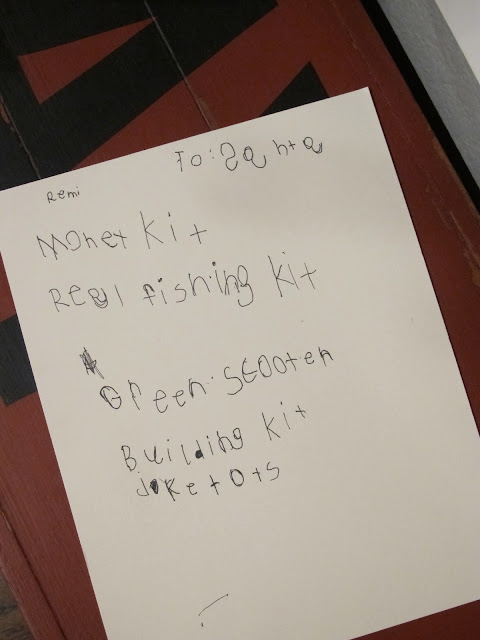 To: Santa
Remi
Monet Kit
Real fishing Kit
Green scooter
Building Kit
Joke tots